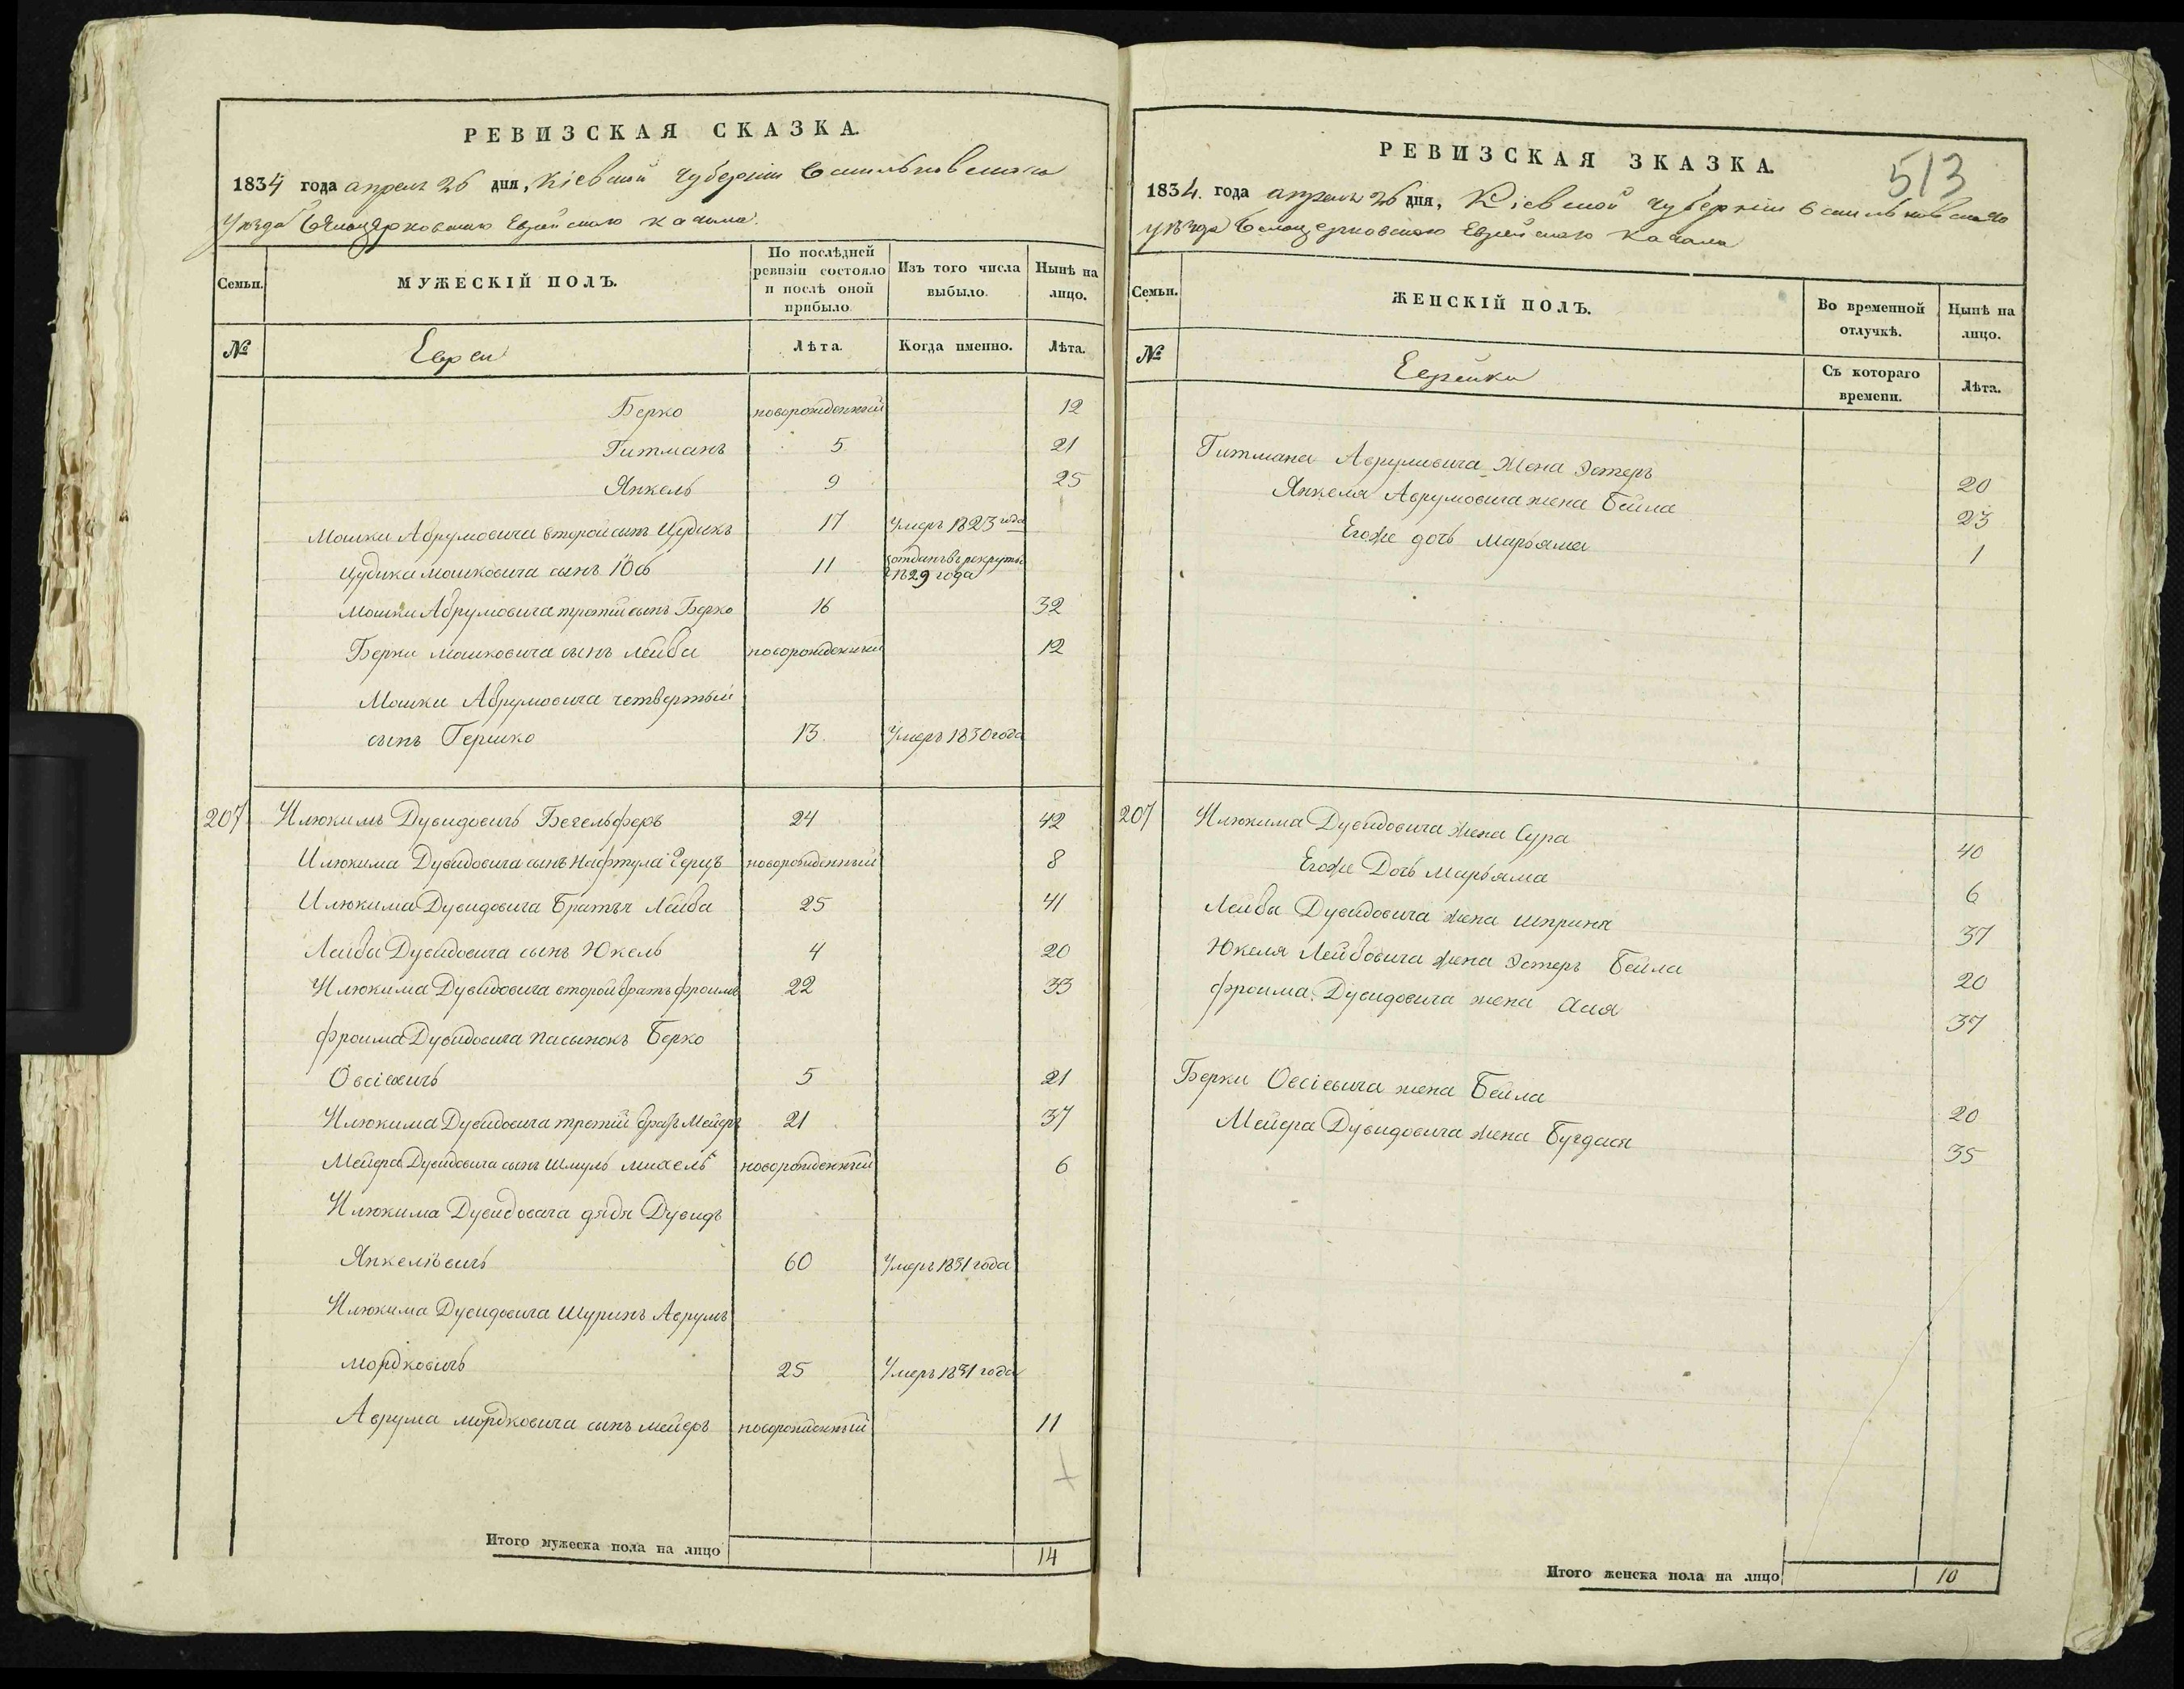 РЕВИЗСКАЯ СКАЗКА.
1834 года апреля 26 дня, Кіевской Губерніи Васильковского
Уѣзда Белоцерковского Еврейского Кагала.
Семьи.
МУЖЕСКІЙ ПОЛЪ.
По послѣдней ревизіи состояло и послѣ оной прибыло.
Изъ того числа выбыло.
Нынѣ на лицо.
№
Евреи
Лѣта.
Когда именно.
Лѣта.
Берко новорожденный 12
Гитманъ 5 21
Янкель 9 25
Мошки Абрумовича второй сынъ Цудикъ 17 Умеръ 1823 года
Цудика Мошковича сынъ Юсь 11 отданъ въ рекруты 1829 года
Мошки Абрумовича третій сынъ Берко 16 32
Берки Мошковича сынъ Лейба новорожденный 12
Мошки Абрумовича четвертый
сынъ Гершко 13 Умеръ 1830 года
207 Илюкимъ Дувидовичъ Бегельферъ 24 42
Илюкима Дувидовича сынъ Нафтула Герцъ новорожденный 8
Илюкима Дувидовича Братъ Лейба 25 41
Лейбы Дувидовича сынъ Юкель 4 20
Илюкима Дувидовича второй братъ Фроимъ 22 33
Фроима Дувидовича пасынокъ Берко
Овсіевичъ 5 21
Илюкима Дувидовича третій братъ Мейеръ 21 37
Мейера Дувидовича сынъ Шмуль Михель новорожденный 6
Илюкима Дувидовича дядя Дувидъ
Янкелювичъ 60 Умеръ 1831 года
Илюкима Дувидовича Шуринъ Аврумъ
Мордковичъ 25 Умеръ 1831 года
Аврума Мордковича сынъ Мейеръ новорожденный 11
Итого мужеска пола на лицо 14
РЕВИЗСКАЯ ЗКАЗКА.
513
1834. года апреля 26 дня, Кіевской Губерніи Васильковского
уѣзда Белоцерковского Еврейского Кагала
Семьи.
ЖЕНСКІЙ ПОЛЪ.
Во временной отлучкѣ.
Нынѣ на лицо.
№
Еврейки
Съ котораго времени.
Лѣта.
Гитмана Аврумовича Жена Эстеръ 20
Янкеля Аврумовича жена Бейла 23
Егоже дочь Марьяма 1
207 Илюкима Дувидовича жена Сура 40
Егоже Дочь Марьяма 6
Лейбы Дувидовича жена Шприня 37
Юкеля Лейбовича жена Эстеръ Бейла 20
Фроима Дувидовича жена Ася 37
Берки Овсіевича жена Бейла 20
Мейера Дувидовича жена 35
Итого женска пола на лицо 10